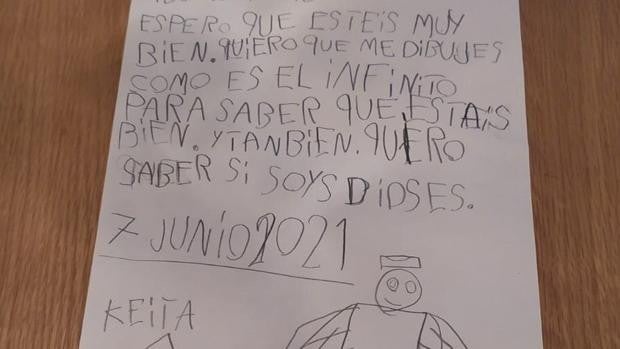 ESPERO QUE ESTEIS MUY
BIEN. QUIERO QUE ME DIBUJES
COMO ES EL INFINITO
PARA SABER QUE ESTAIS
BIEN. Y TANBIEN. QUIERO
SABER SI SOYS DIOSES.
7 JUNIO 2021
KEITA